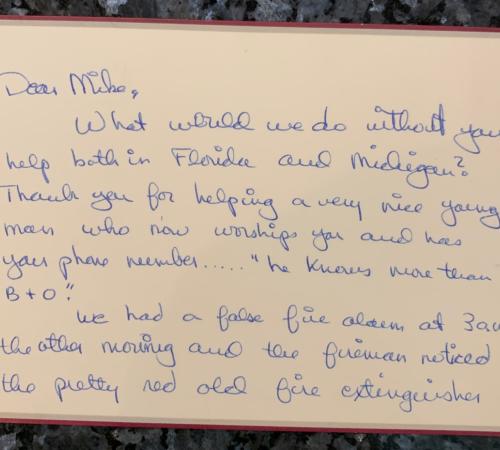 Dear Mike,
What would we do without you
help both in Florida and Michigan?
Thank you for helping a very nice young
man who now worships you and has
your phone number..... "he knows more than
B + O".
we had a false fire alarm at 3am
the other morning and the fireman noticed
the pretty red old fire extinguisher